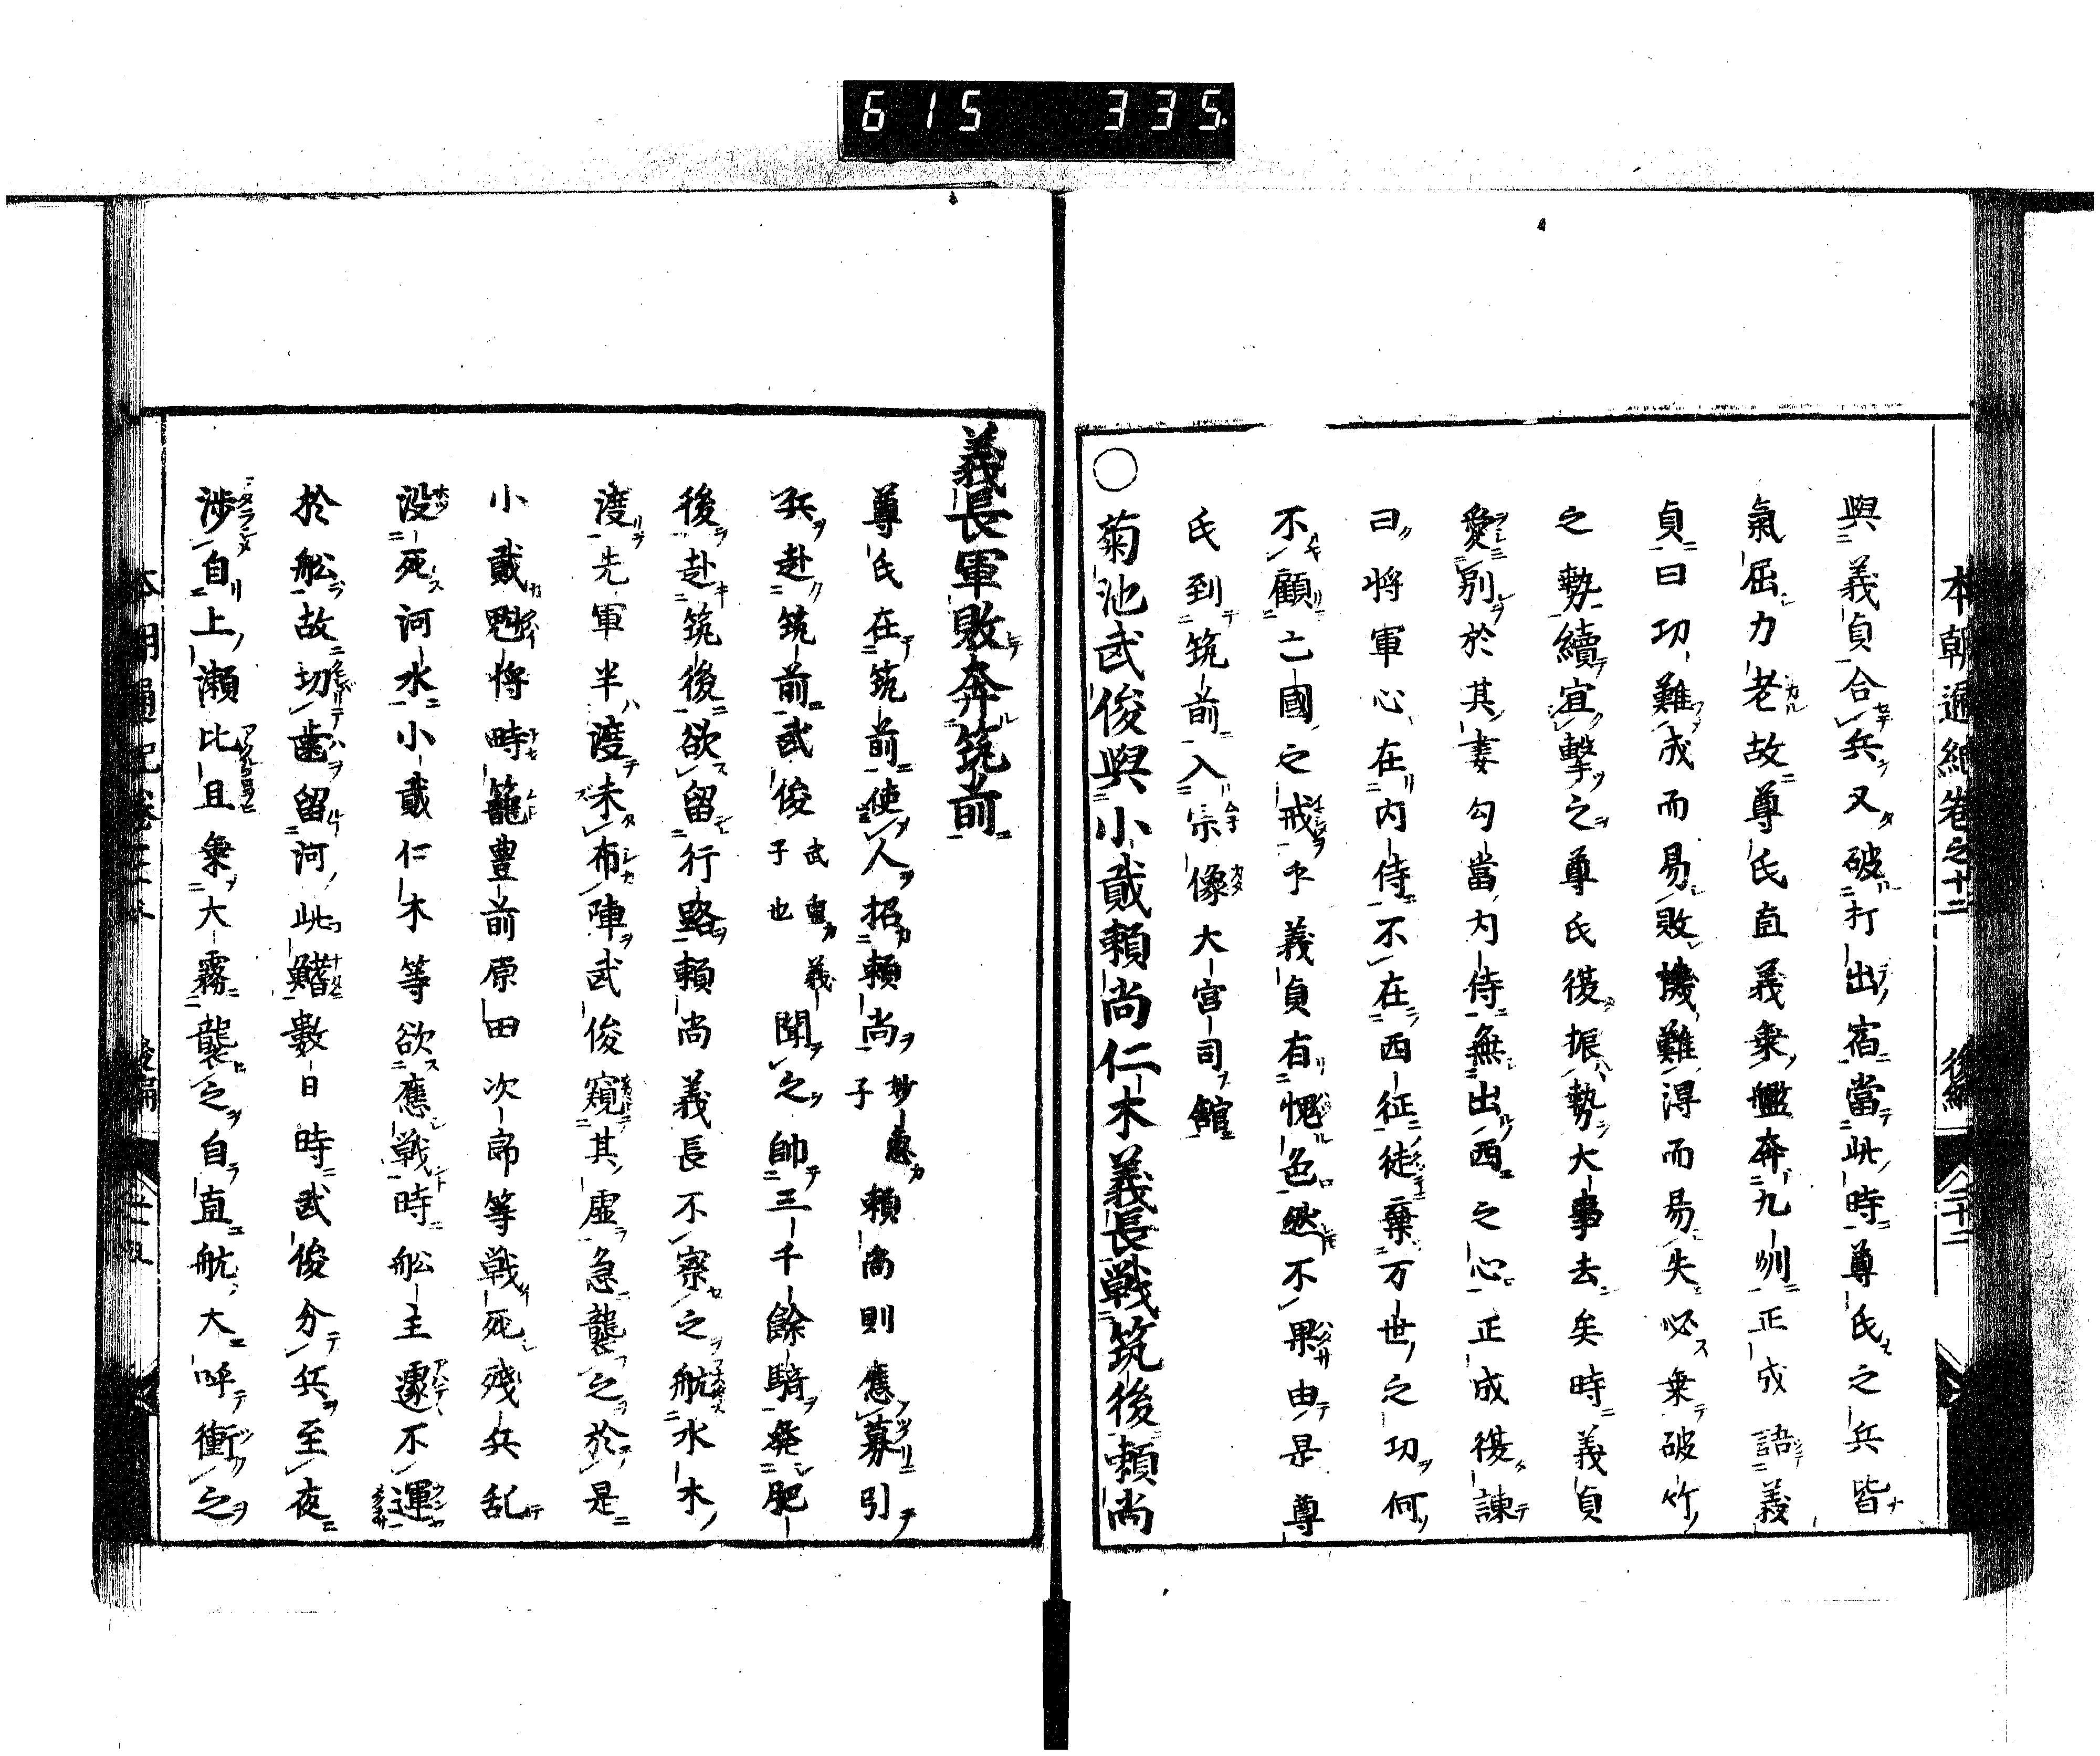 615 335.
本朝通紀卷之十二 後編 二十二
與義貞合兵又破打出宿當此時尊氏之兵皆
氣屈力老故尊氏直義乗艦奔九州正成語義
貞曰功難成而易敗機難得而易失必乗破竹
之勢續宜擊之尊氏復振勢大事去矣時義貞
愛別於其妻勾當内侍無出西之心正成復諫
曰将軍心在内侍不在西征徒棄万世之功何
不顧亡國之戒乎義貞有愧色然不果由是尊
氏到筑前入宗像大宮司館
○菊池武俊與小貳頼尚仁木義長戦筑後頼尚
義長軍敗奔筑前
尊氏在筑前使人招頼尚妙惠子頼尚則應募引
兵赴筑前武俊武重義子也聞之帥三千餘騎発肥
後赴筑後欲留行路頼尚義長不察之航水木
渡先軍半渡未布陣武俊窺其虚急襲之於是
小貳尅将時籠豊前原田次郎等戦死残兵乱
没死河水小貳仁木等欲應戦時舩主遽不運
於舩故切歯留河此鰭數日時武俊分兵至夜
渉自上瀬比且乗大霧襲之自直航大呼衝之